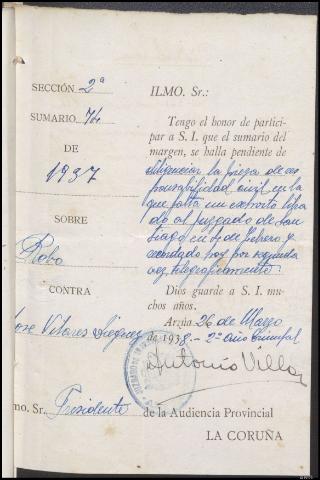 SECCIÓN 2ª
SUMARIO 76
DE
1937
SOBRE
Robo
CONTRA
Jose Vilares
ILMO. Sr.:
Tengo el honor de partici-
par a S. I. que el sumario del
margen, se halla pendiente de
diligenciar la pieza de res
ponsabilidad civil en la
que falta un exhorto libra
do al juzgado de San
tiago en 4 de febrero y
recordado hoy por segunda
vez telegraficamente.
Dios guarde a S. I. mu-
chos años.
Arzúa 26 de Marzo
de 1938.- 2º año triunfal
Antonio Villar
mo. Sr. Presidente de la Audiencia Provincial
LA CORUÑA